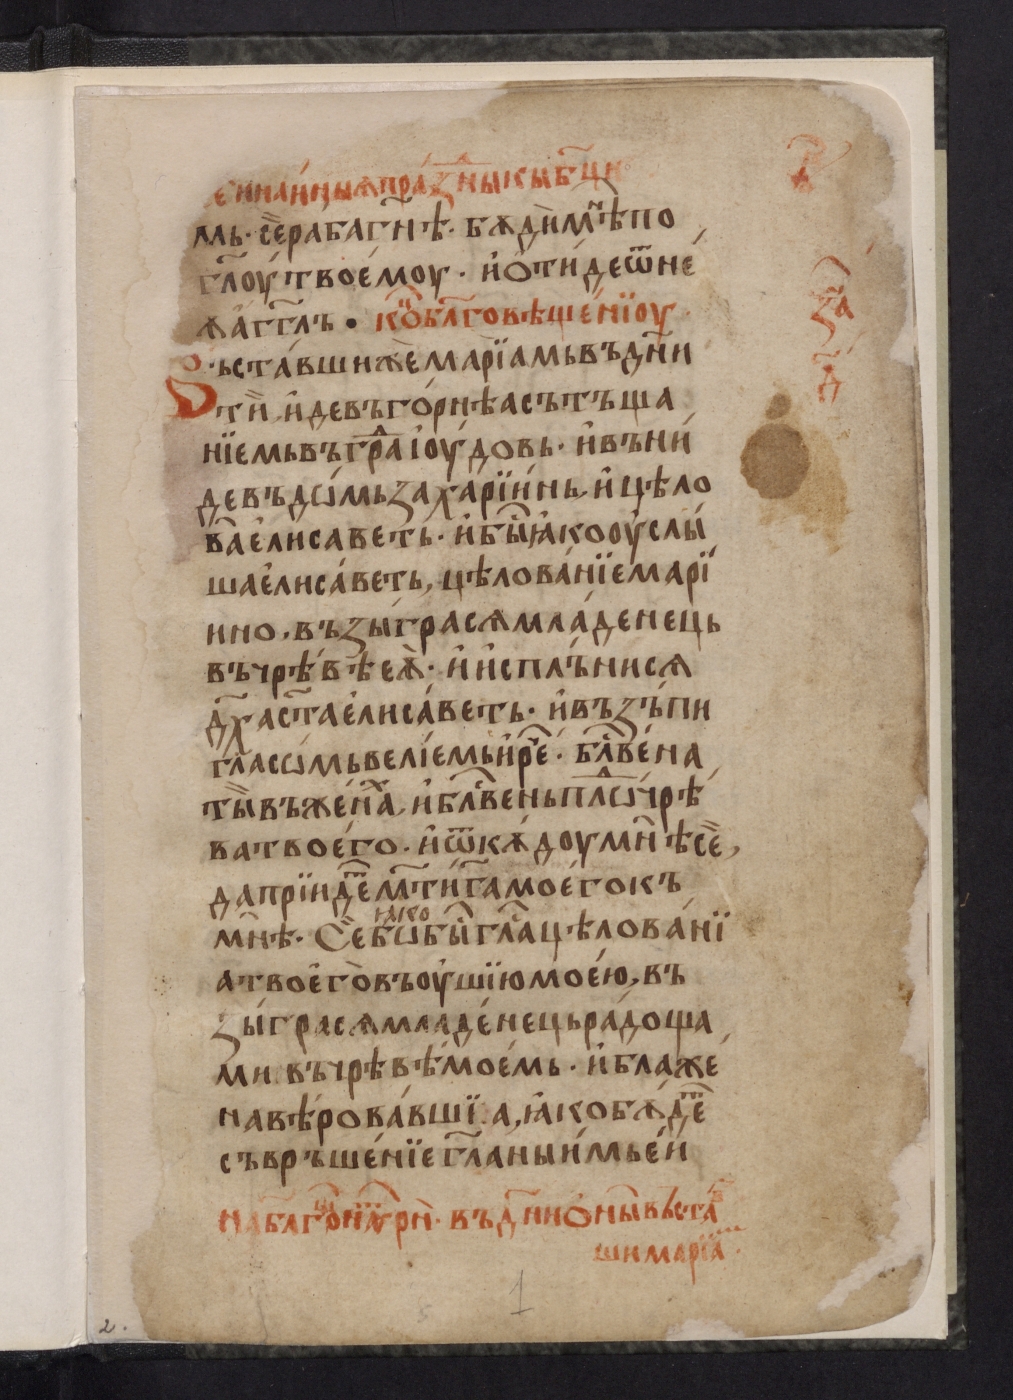 и на и҆ны ѧ҆ пра́зⷣны кы бц҃и
мь· се̏ раба гн҃ѣ· бѫди мнѣ по
гл҃оу твоемоу· и҆ ѿтиде ѿ нее
ѫ аг҃глъ • ко бл҃говѣщенїоу
Въставши же марїамь въ дн҃и
ти, и҆де въ горнѣа съ тъща
нїемь въ граⷣ іоудовь· и҆ въни
де въ дѡмь захарїинь, и҆ цѣло
ва елисаветь· и҆ бы҇ ꙗко оуслы
ша елисаветь, цѣлованїе марї
ино, възыграся младенець
въ чрѣвѣ еѫ· и҆ исплънися
дх҃а ст҃а елисаветь· и҆ възъпи
гласѡмь велїемь и҆ рече· блв҃ена
ты въ женаⷯ, и҆ блв҃ень плѡⷣ чрѣ
ва твоего· и҆ ѿкѫдоу мнѣ се,
да прїидеть мт҃и г҃а моего къ
мнѣ· Се бѡ ꙗко бы҇ гла҇ цѣлованї
а твоего въ оушїю моею, въ
зыграся младенець радоща
ми въ чрѣвѣ моемь· и҆ блаже
на вѣровавшїа, ꙗко бѫдеть
съвръшенїе гл҃аныимь ей
на бл҃говѣщ на оутрни· въ дн҃и ѻны въста
ши марїа·
з҃а
д҃
1
2.